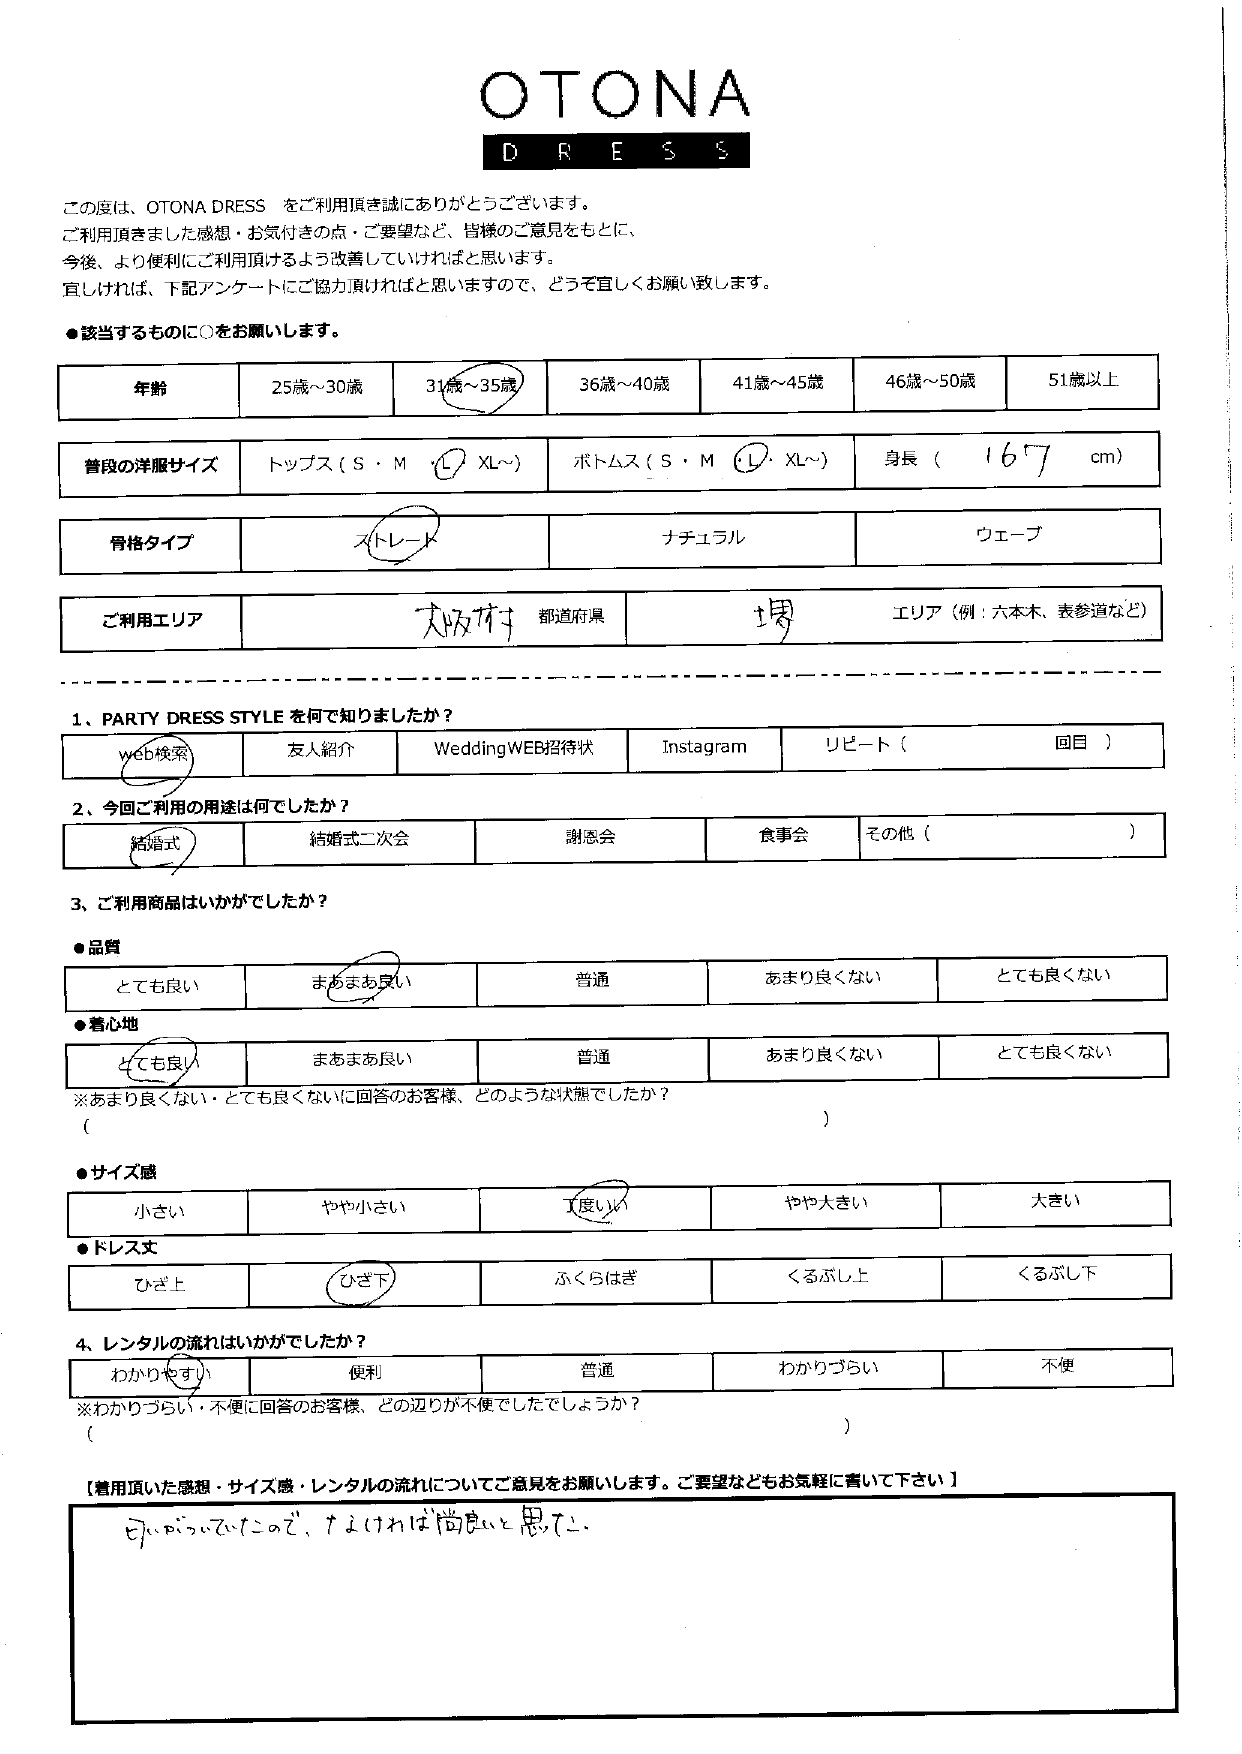 OTONA
DRESS
この度は、OTONA DRESS　をご利用頂き誠にありがとうございます。
ご利用頂きました感想・お気付きの点・ご要望など、皆様のご意見をもとに、
今後、より便利にご利用頂けるよう改善していければと思います。
宜しければ、下記アンケートにご協力頂ければと思いますので、どうぞ宜しくお願い致します。
●該当するものに○をお願いします。
年齢 25歳～30歳 31歳～35歳 36歳～40歳 41歳～45歳 46歳～50歳 51歳以上
普段の洋服サイズ トップス ( S ・ M ・L・ XL～) ボトムス ( S ・ M ・L・ XL～) 身長 ( 167 cm)
骨格タイプ ストレート ナチュラル ウェーブ
ご利用エリア 大阪府 都道府県 堺 エリア（例：六本木、表参道など）
1、PARTY DRESS STYLE を何で知りましたか？
web検索 友人紹介 WeddingWEB招待状 Instagram リピート（ 回目 ）
2、今回ご利用の用途は何でしたか？
結婚式 結婚式二次会 謝恩会 食事会 その他（ ）
3、ご利用商品はいかがでしたか？
●品質
とても良い まあまあ良い 普通 あまり良くない とても良くない
●着心地
とても良い まあまあ良い 普通 あまり良くない とても良くない
※あまり良くない・とても良くないに回答のお客様、どのような状態でしたか？
( )
●サイズ感
小さい やや小さい 丁度いい やや大きい 大きい
●ドレス丈
ひざ上 ひざ下 ふくらはぎ くるぶし上 くるぶし下
4、レンタルの流れはいかがでしたか？
わかりやすい 便利 普通 わかりづらい 不便
※わかりづらい・不便に回答のお客様、どの辺りが不便でしたでしょうか？
( )
【着用頂いた感想・サイズ感・レンタルの流れについてご意見をお願いします。ご要望などもお気軽に書いて下さい 】
匂いがついていたので、なければ尚良いと思った.